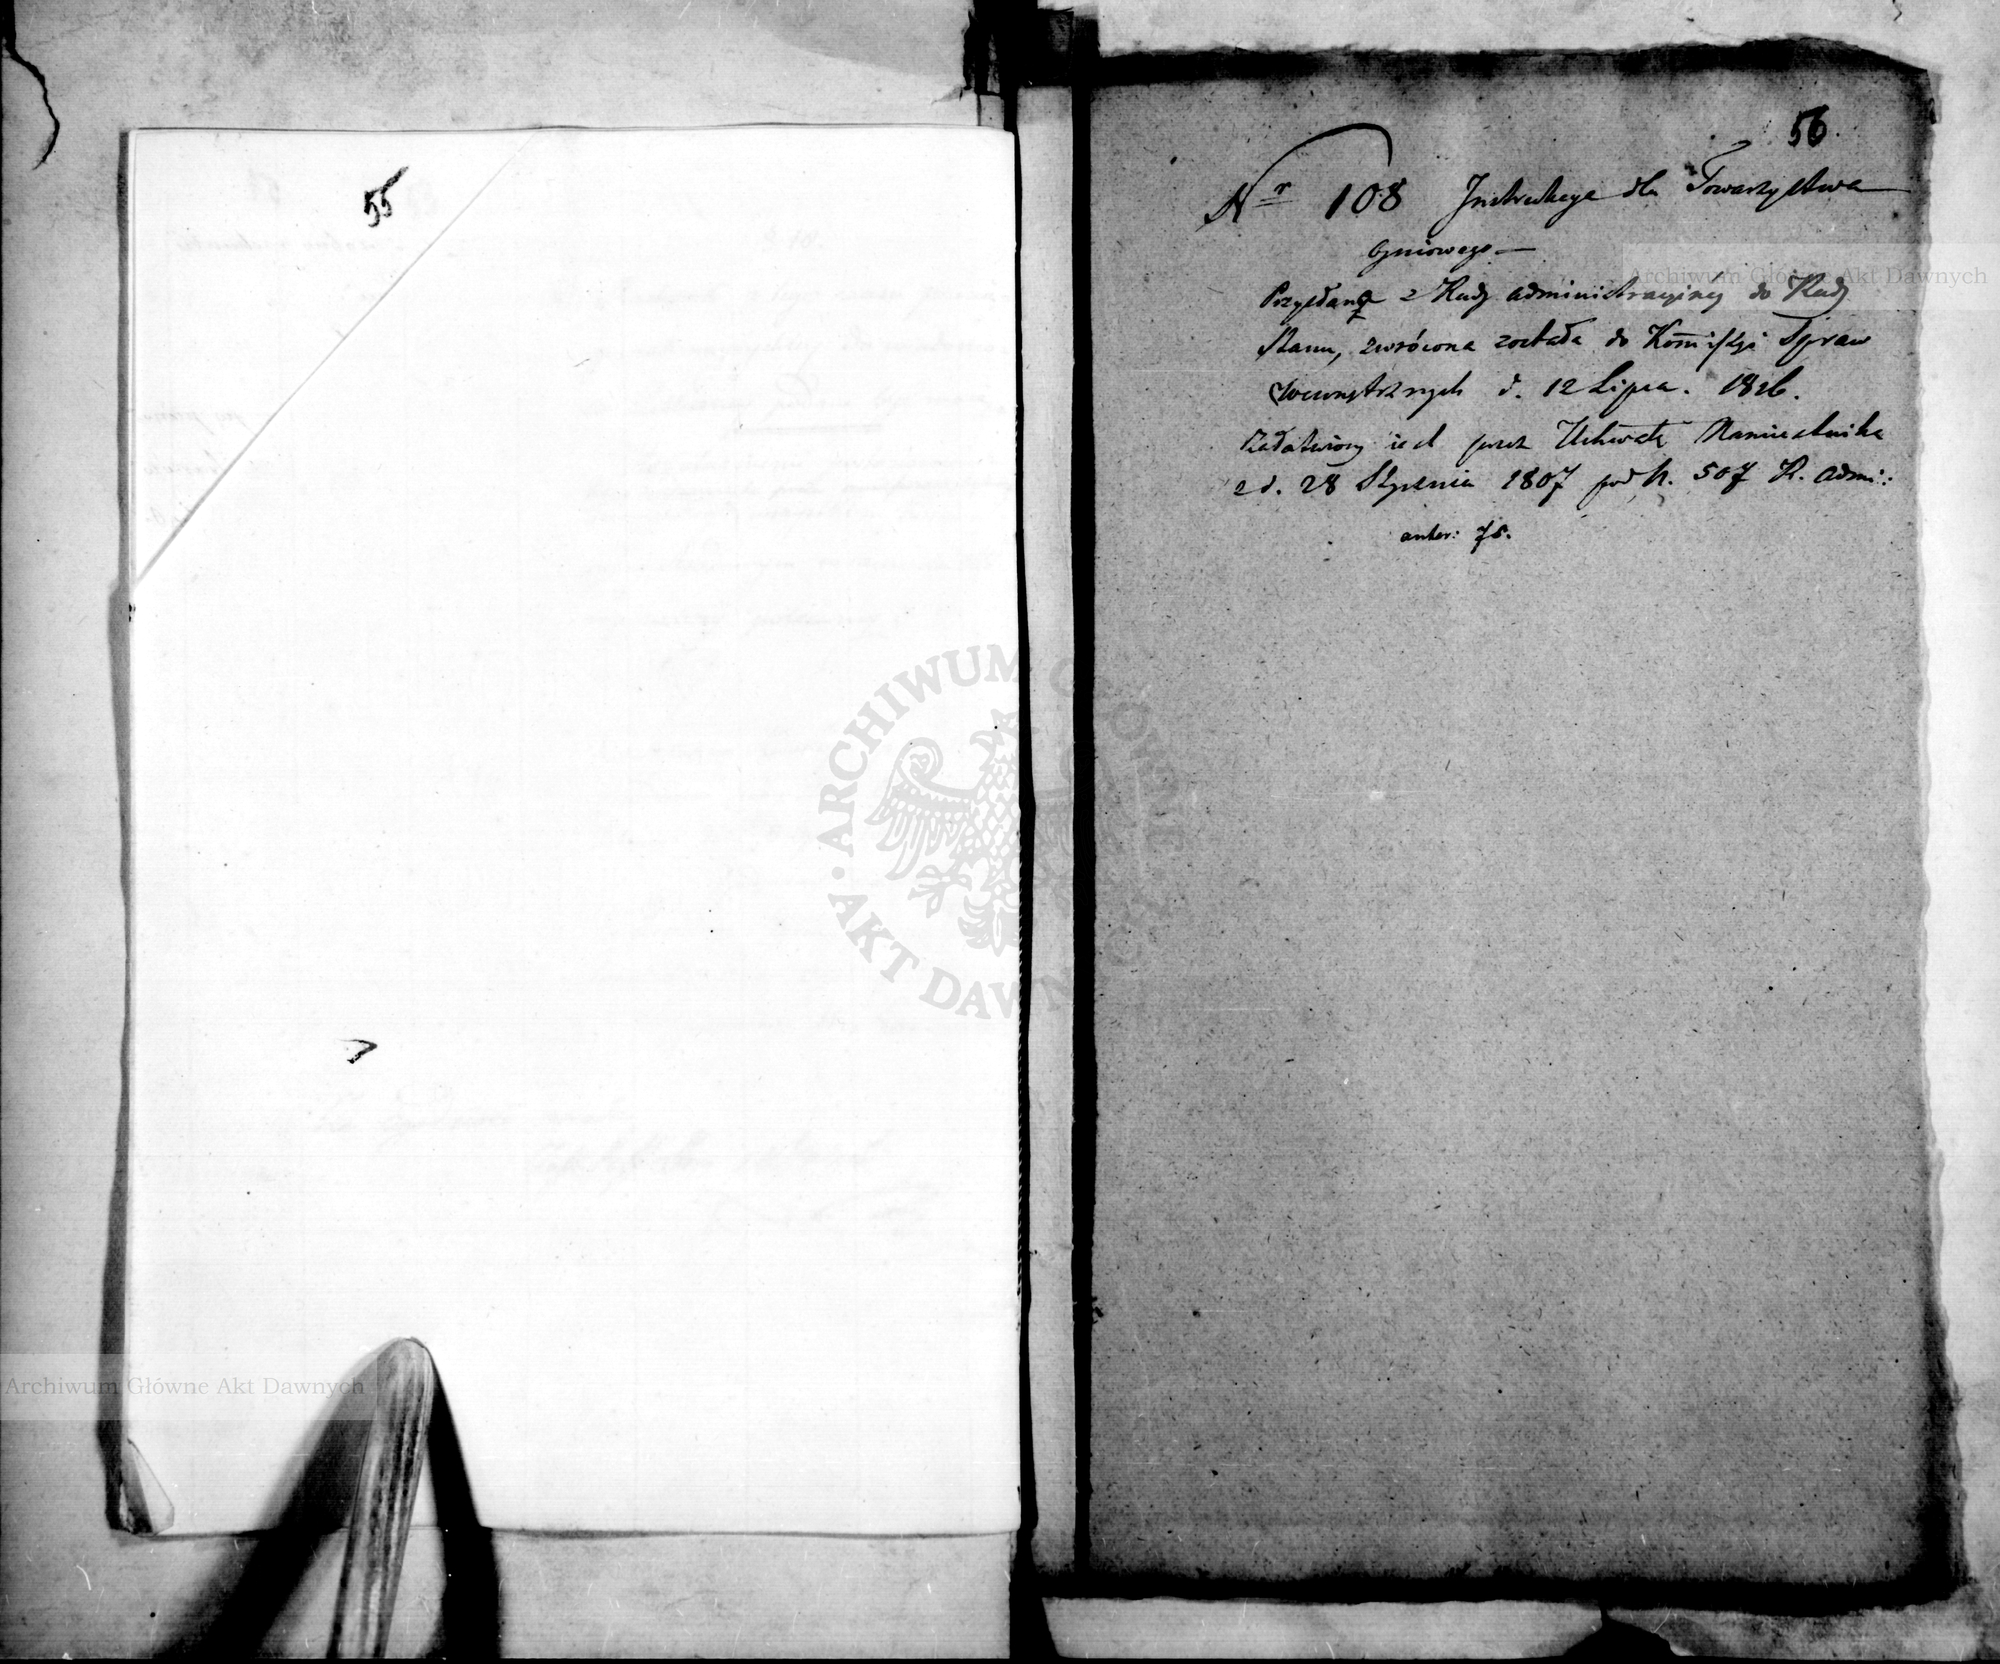 55
56.
Nr 108 Instrukcya dla Towarzystwa
Ogniowego —
Przysłana z Rady administracyiney do Rady
Stanu, zwrócona została do Kom̄issyi Spraw
Wewnętrznych d. 12 Lipca. 1826.
Załatwiony iest przez Uchwałę Namiestnika
z d. 28 Stycznia 1807 pod N. 507 R. Admi:
75.
Archiwum Główne Akt Dawnych
ARCHIWUM GŁÓWNE · AKT DAWNYCH ·
Archiwum Główne Akt Dawnych